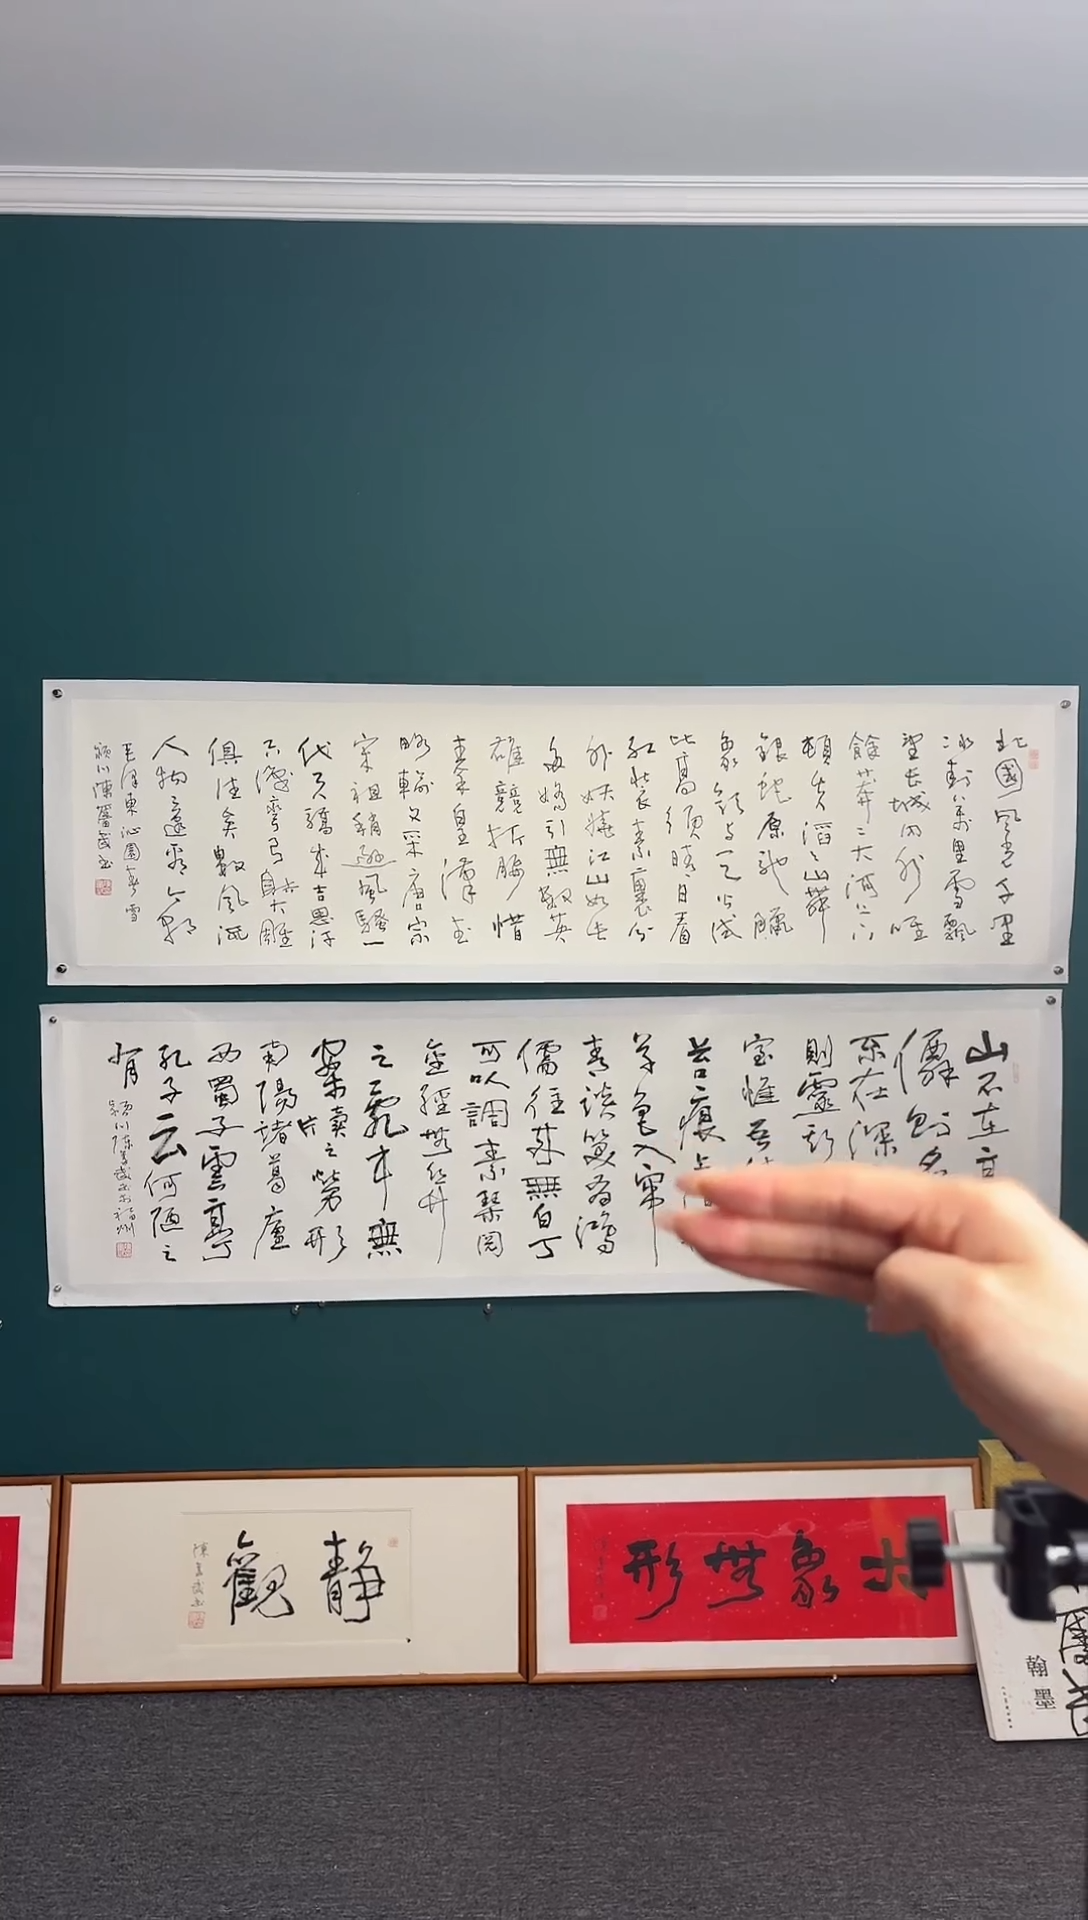 北國風光千里
冰封萬里雪飄
望長城內外唯
餘莽莽大河上下
頓失滔滔山舞
銀蛇原馳臘
象欲與天公試
比高須晴日看
紅裝素裹分
外妖嬈江山如此
多嬌引無數英
雄競折腰惜
秦皇漢武
略輸文采唐宗
宋祖稍遜風騷一
代天驕成吉思汗
只識彎弓射大雕
俱往矣數風流
人物還看今朝
毛澤東沁園春雪
潁川陳
山不在高
僊則名
不在深
則靈斯
室惟吾
苔痕上階
草色入簾
青談笑有鴻
儒往來無白丁
可以調素琴閱
金經無絲竹
之亂耳無
案牘之勞形
南陽諸葛廬
西蜀子雲亭
孔子云何陋之
有
潁川陳
靜觀
大象無形
翰墨